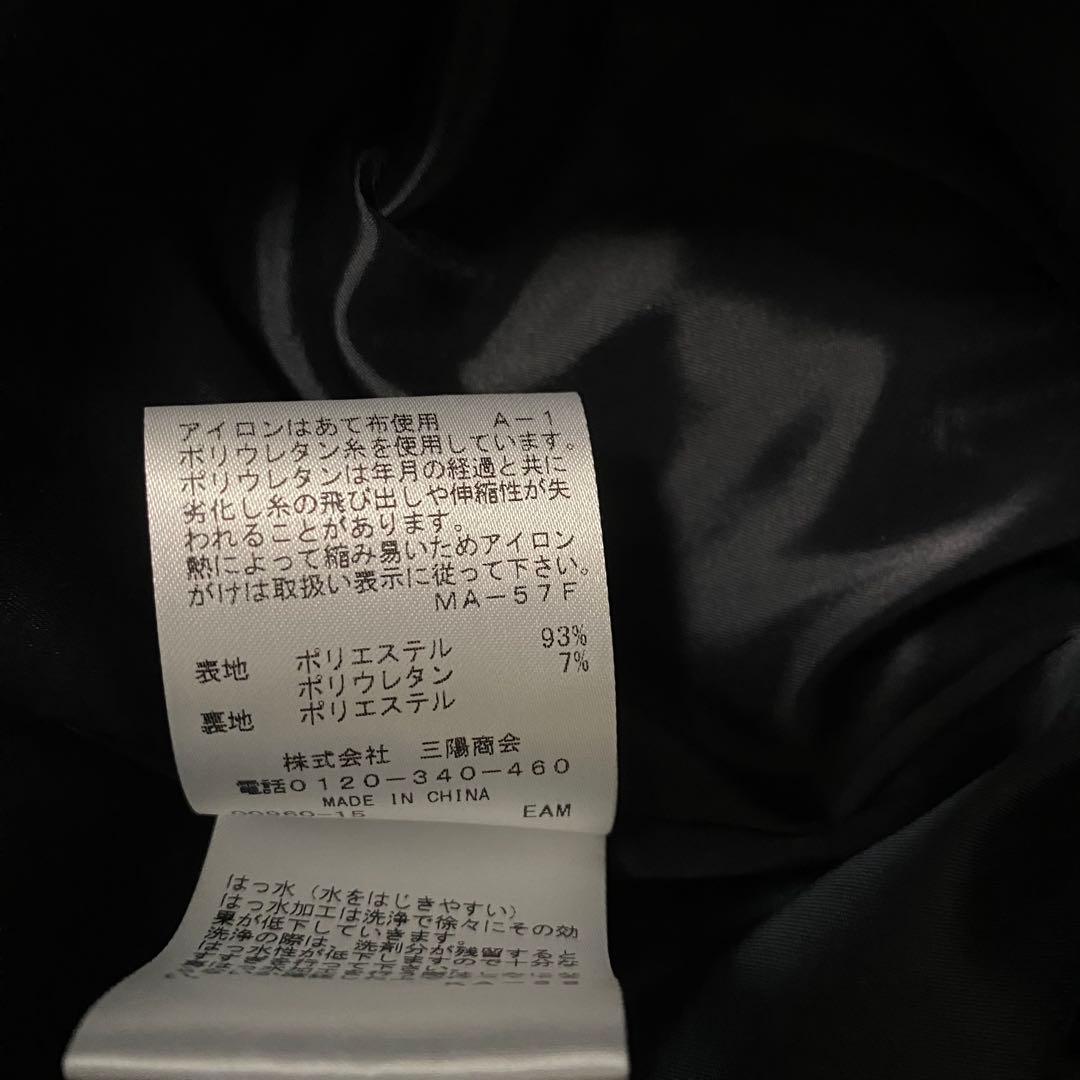 アイロンはあて布使用 A-1
ポリウレタン糸を使用しています。
ポリウレタンは年月の経過と共に
劣化し糸の飛び出しや伸縮性が失
われることがあります。
熱によって縮み易いためアイロン
がけは取扱い表示に従って下さい。
MA-57F
表地 ポリエステル 93%
ポリウレタン 7%
裏地 ポリエステル
株式会社 三陽商会
電話0120-340-460
MADE IN CHINA
00960-15 EAM
はっ水(水をはじきやすい)
はっ水加工は洗浄で徐々にその効
果が低下していきます。
洗浄の際は、洗剤分が残留すると
はっ水性が低下しますので十分な